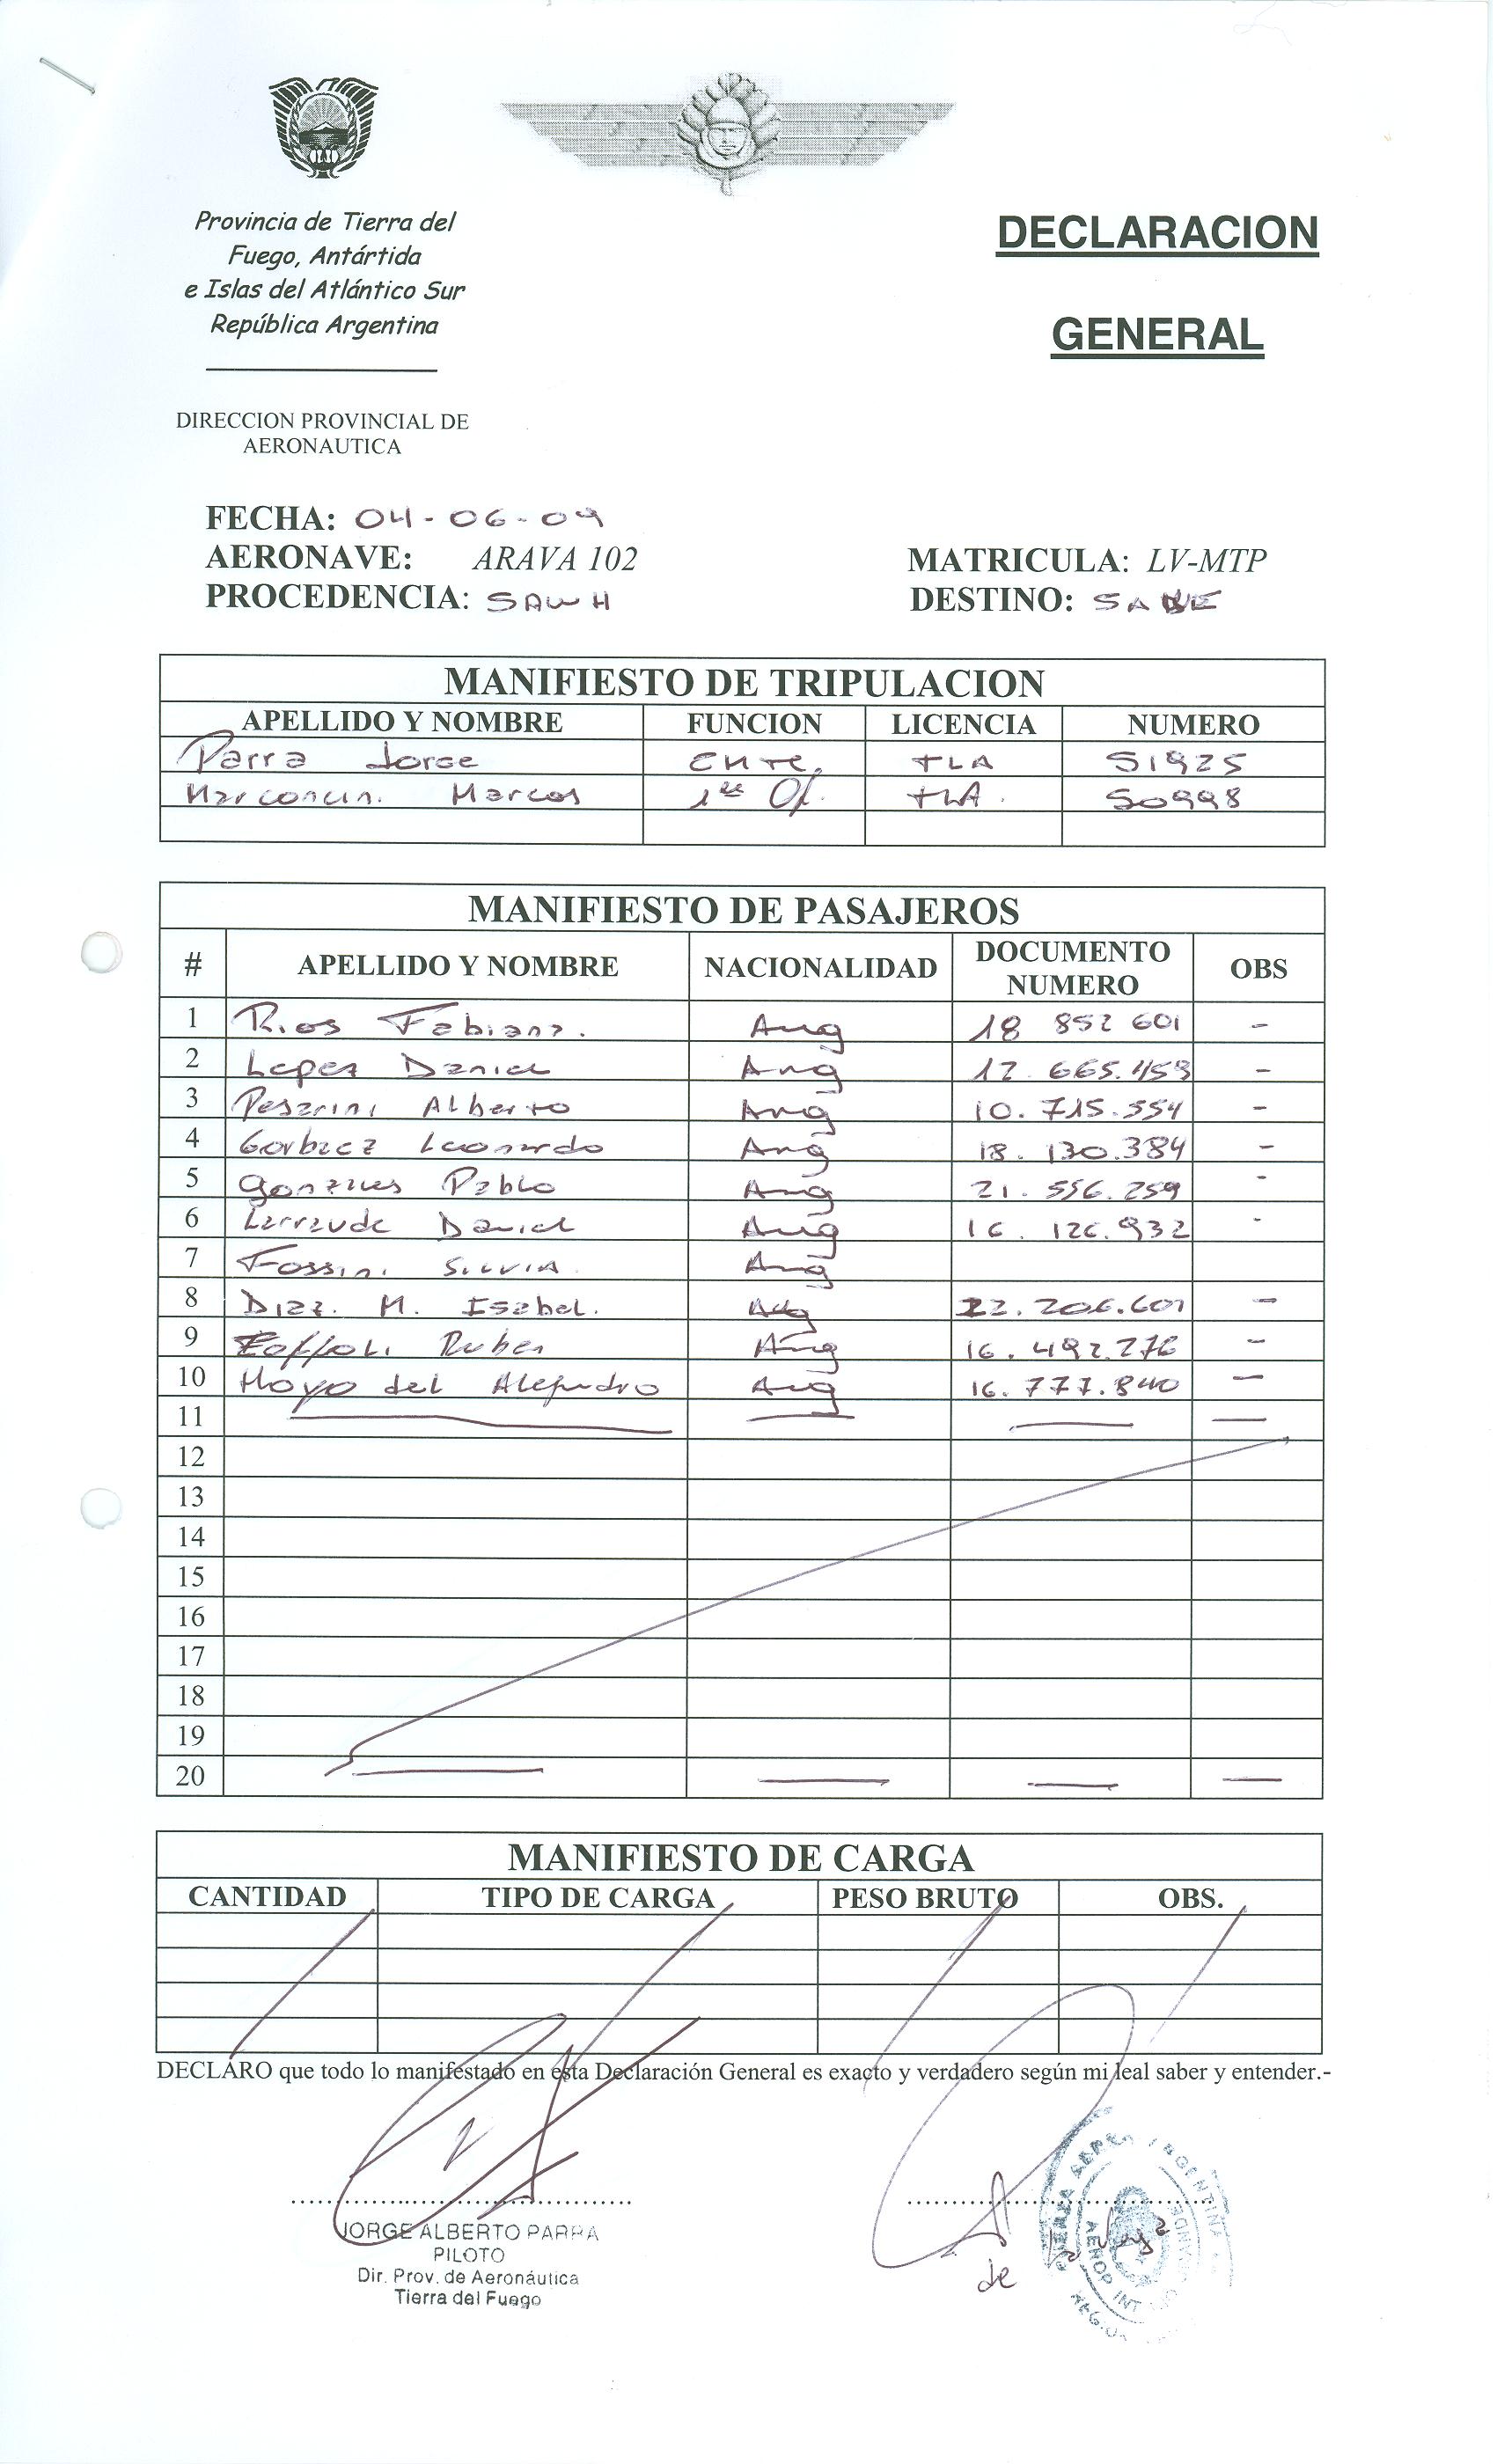 Provincia de Tierra del
Fuego, Antártida
e Islas del Atlántico Sur
República Argentina
DECLARACION
GENERAL
DIRECCION PROVINCIAL DE
AERONAUTICA
FECHA: 04-06-09
AERONAVE: ARAVA 102 MATRICULA: LV-MTP
PROCEDENCIA: SAWH DESTINO:
MANIFIESTO DE TRIPULACION
APELLIDO Y NOMBRE FUNCION LICENCIA NUMERO
Parra Jorge TLA 51925
Marconcin. Marcos 1er Of. TLA. 50998
MANIFIESTO DE PASAJEROS
# APELLIDO Y NOMBRE NACIONALIDAD DOCUMENTO NUMERO OBS
1 Rios Fabiana. Arg 18 852 601 -
2 Lopez Daniel Arg 12.665.459 -
3 Alberto Arg 10.715.554 -
4 Gorbacz Leonardo Arg 18.130.384 -
5 Gonzales Pablo Arg 21.556.259 -
6 Larraude Daniel Arg 16.126.932 -
7 Fossini Silvia Arg
8 Diaz. M. Isabel. Arg 22.206.601 -
9 Zoffoli Ruben Arg 16.492.276 -
10 Hoyo del Alejandro Arg 16.777.840 -
11
12
13
14
15
16
17
18
19
20
MANIFIESTO DE CARGA
CANTIDAD TIPO DE CARGA PESO BRUTO OBS.
DECLARO que todo lo manifestado en esta Declaración General es exacto y verdadero según mi leal saber y entender.-
JORGE ALBERTO PARRA
PILOTO
Dir. Prov. de Aeronáutica
Tierra del Fuego
de